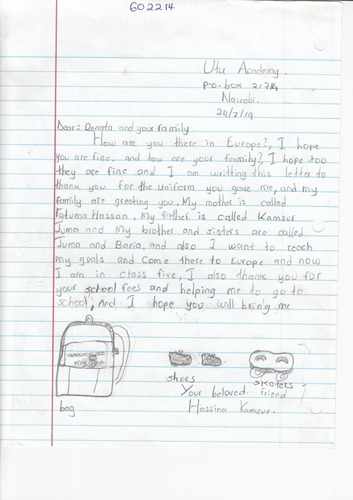 602214
Utu Academy.
P.o. box 21784
Nairobi.
24/7/19
Dear: Renata and your family.
How are you there in Europe?, I hope
you are fine. and how are your family?, I hope too
they are fine and I am writting this letter to
thank you for the uniform you gave me, and my
family are greeting you. My mother is called
Fatuma Hassan, My father is called Kamsur
Juma and My brother and sisters are called
Juma and Baria, and also I want to reach
my goals and come there to Europe and now
I am in class five, I also thank you for
your school fees and helping me to go to
school, And I hope you will bring me
shoes
skaters
Your beloved friend
bag
Hassina Kamsur.